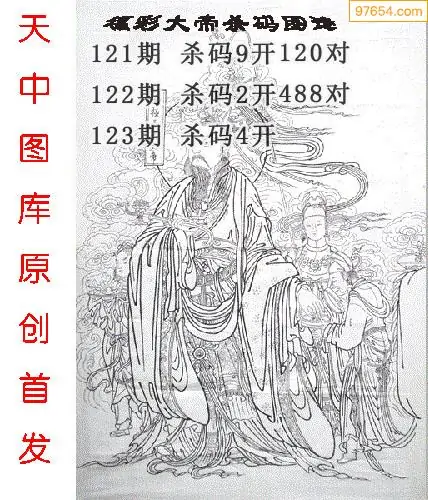 97654.com
福彩大帝杀码图谜
121期 杀码9开120对
122期 杀码2开488对
123期 杀码4开
天中图库原创首发